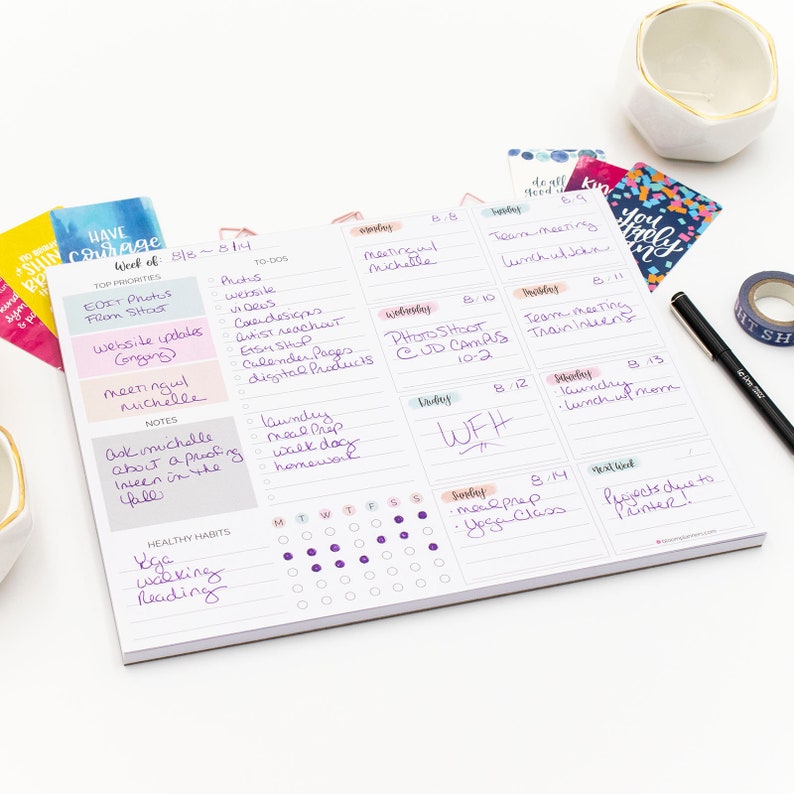 Week of: 8/8 ~ 8/14
TOP PRIORITIES
EDIT PHOTOS
FROM SHOOT
website updates
(ongoing)
meeting w/
michelle
NOTES
ask michelle
about a proofing
intern in the
fall
HEALTHY HABITS
Yoga
walking
Reading
TO-DOS
Photos
website
videos
Cover designs
artist reachout
Etsy Shop
Calendar Pages
digital Products
laundry
meal Prep
walk dog
homework
M T W T F S S
monday 8/8
meeting w/
michelle
Tuesday 8/9
Team meeting
lunch w/ John
Wednesday 8/10
PHOTOSHOOT
@ UD CAMPUS
10-2
Thursday 8/11
Team meeting
Train Interns
Friday 8/12
WFH
Saturday 8/13
• laundry
• lunch w/ mom
Sunday 8/14
• meal prep
• Yoga Class
next week
Projects due to
Printer!
bloomplanners.com
HAVE
Courage
do all
good
you